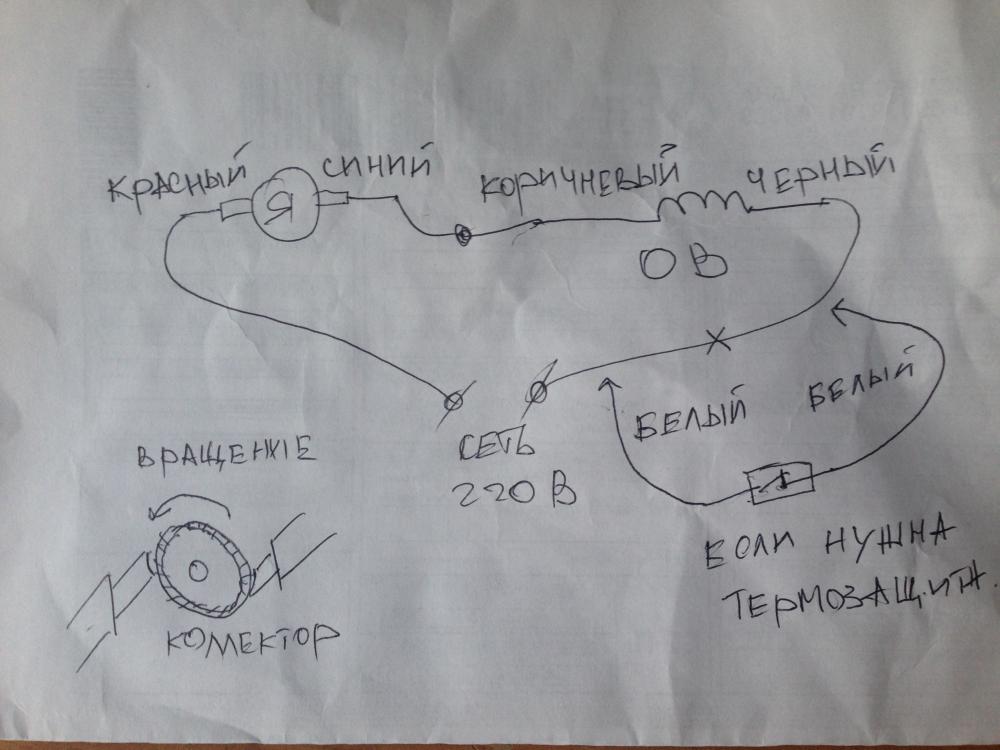 КРАСНЫЙ
Я
СИНИЙ
КОРИЧНЕВЫЙ
ЧЕРНЫЙ
ОВ
БЕЛЫЙ
БЕЛЫЙ
СЕТЬ
220В
ВРАЩЕНИЕ
КОМЕКТОР
ЕСЛИ НУЖНА
ТЕРМОЗАЩИТА.